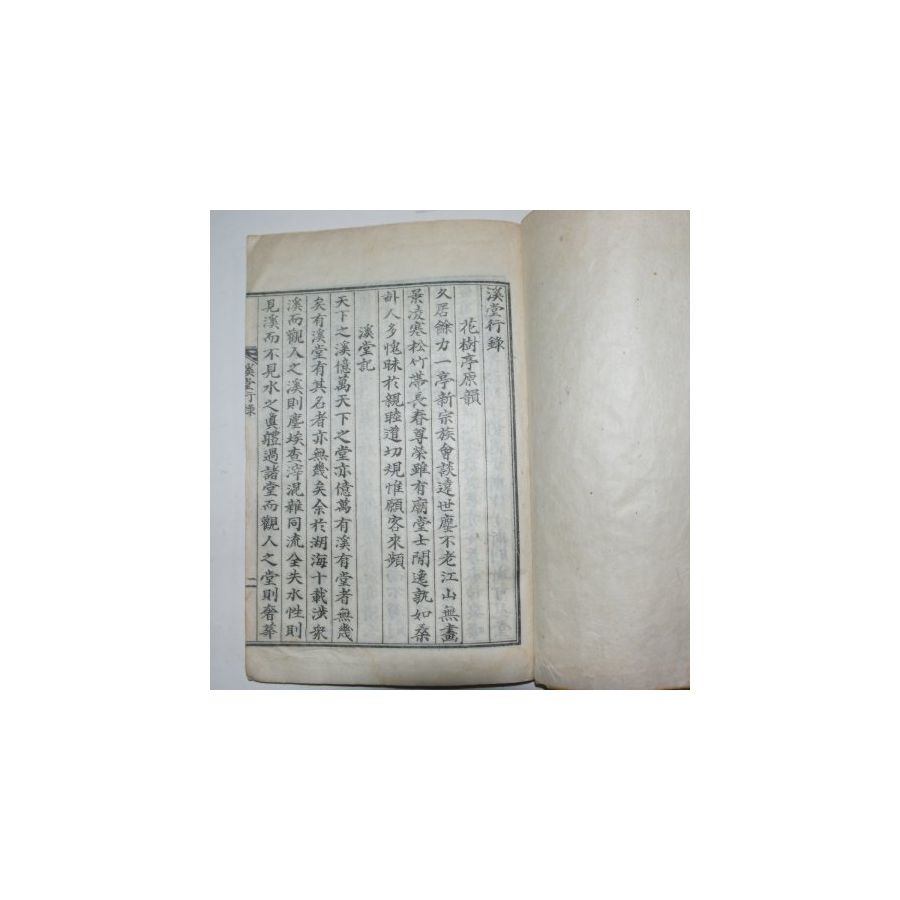 溪堂行錄
花樹亭原韻
久居餘力一亭新宗族會談遠世塵不老江山無盡
景凌寒松竹帶長春尊榮雖有廟堂士閒逸孰如桑
朴人多愧昧於親睦道切規惟願客來頻
溪堂記
天下之溪億萬天下之堂亦億萬有溪有堂者無幾
矣有溪堂有其名者亦無幾矣余於湖海十載涉衆
溪而觀人之溪則塵埃查滓混雜同流全失水性則
見溪而不見水之眞軆過諸堂而觀人之堂則奢華
溪堂行錄
二